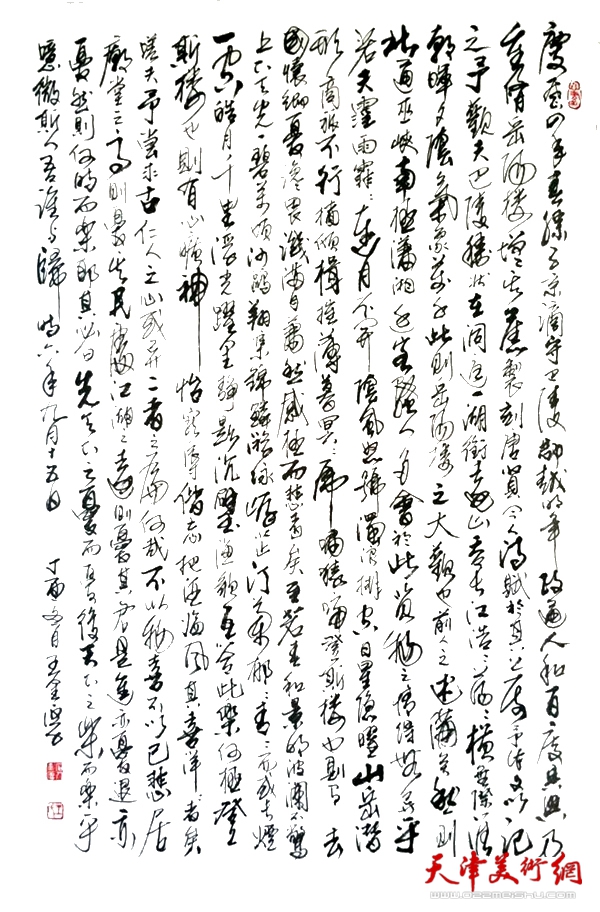 慶曆四年春滕子京謫守巴陵郡越明年政通人和百廢具興乃
重脩岳陽樓增其舊製刻唐賢今人詩賦於其上屬予作文以記
之予觀夫巴陵勝狀在洞庭一湖銜遠山吞長江浩浩蕩蕩橫無際涯
朝暉夕陰氣象萬千此則岳陽樓之大觀也前人之述備矣然則
北通巫峽南極瀟湘遷客騷人多會於此覽物之情得無異乎
若夫霪雨霏霏連月不開陰風怒號濁浪排空日星隱曜山岳潛
形商旅不行檣傾楫摧薄暮冥冥虎嘯猿啼登斯樓也則有去
國懷鄉憂讒畏譏滿目蕭然感極而悲者矣至若春和景明波瀾不驚
上下天光一碧萬頃沙鷗翔集錦鱗游泳岸芷汀蘭郁郁青青而或長煙
一空皓月千里浮光躍金靜影沉璧漁歌互答此樂何極登
斯樓也則有心曠神怡寵辱偕忘把酒臨風其喜洋洋者矣
嗟夫予嘗求古仁人之心或異二者之為何哉不以物喜不以己悲居
廟堂之高則憂其民處江湖之遠則憂其君是進亦憂退亦
憂然則何時而樂耶其必曰先天下之憂而憂後天下之樂而樂乎
噫微斯人吾誰與歸時六年九月十五日
丁酉冬月王金
天津美術網